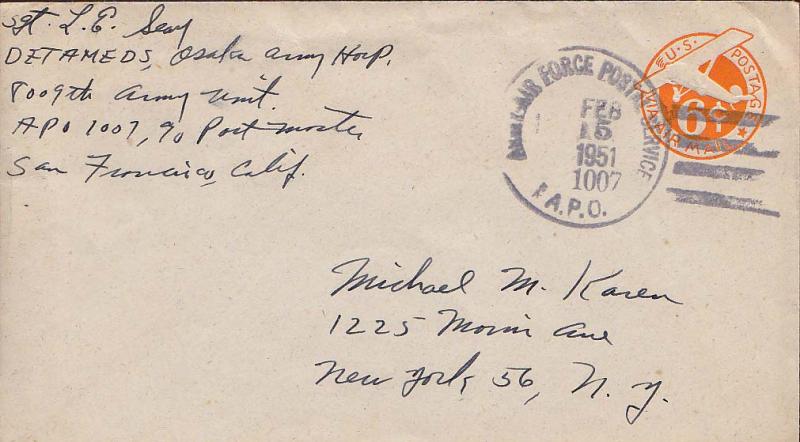 Sgt. L. E. Seay
DETAMEDS, Osaka Army Hosp.
8009th Army Unit.
APO 1007, % Post Master
San Francisco, Calif.
ARMY-AIR FORCE POSTAL SERVICE
FEB
15
1951
1007
A.P.O.
U.S. POSTAGE
6¢
VIA AIR MAIL
Michael M. Karen
1225 Ave
New York, 56, N. Y.